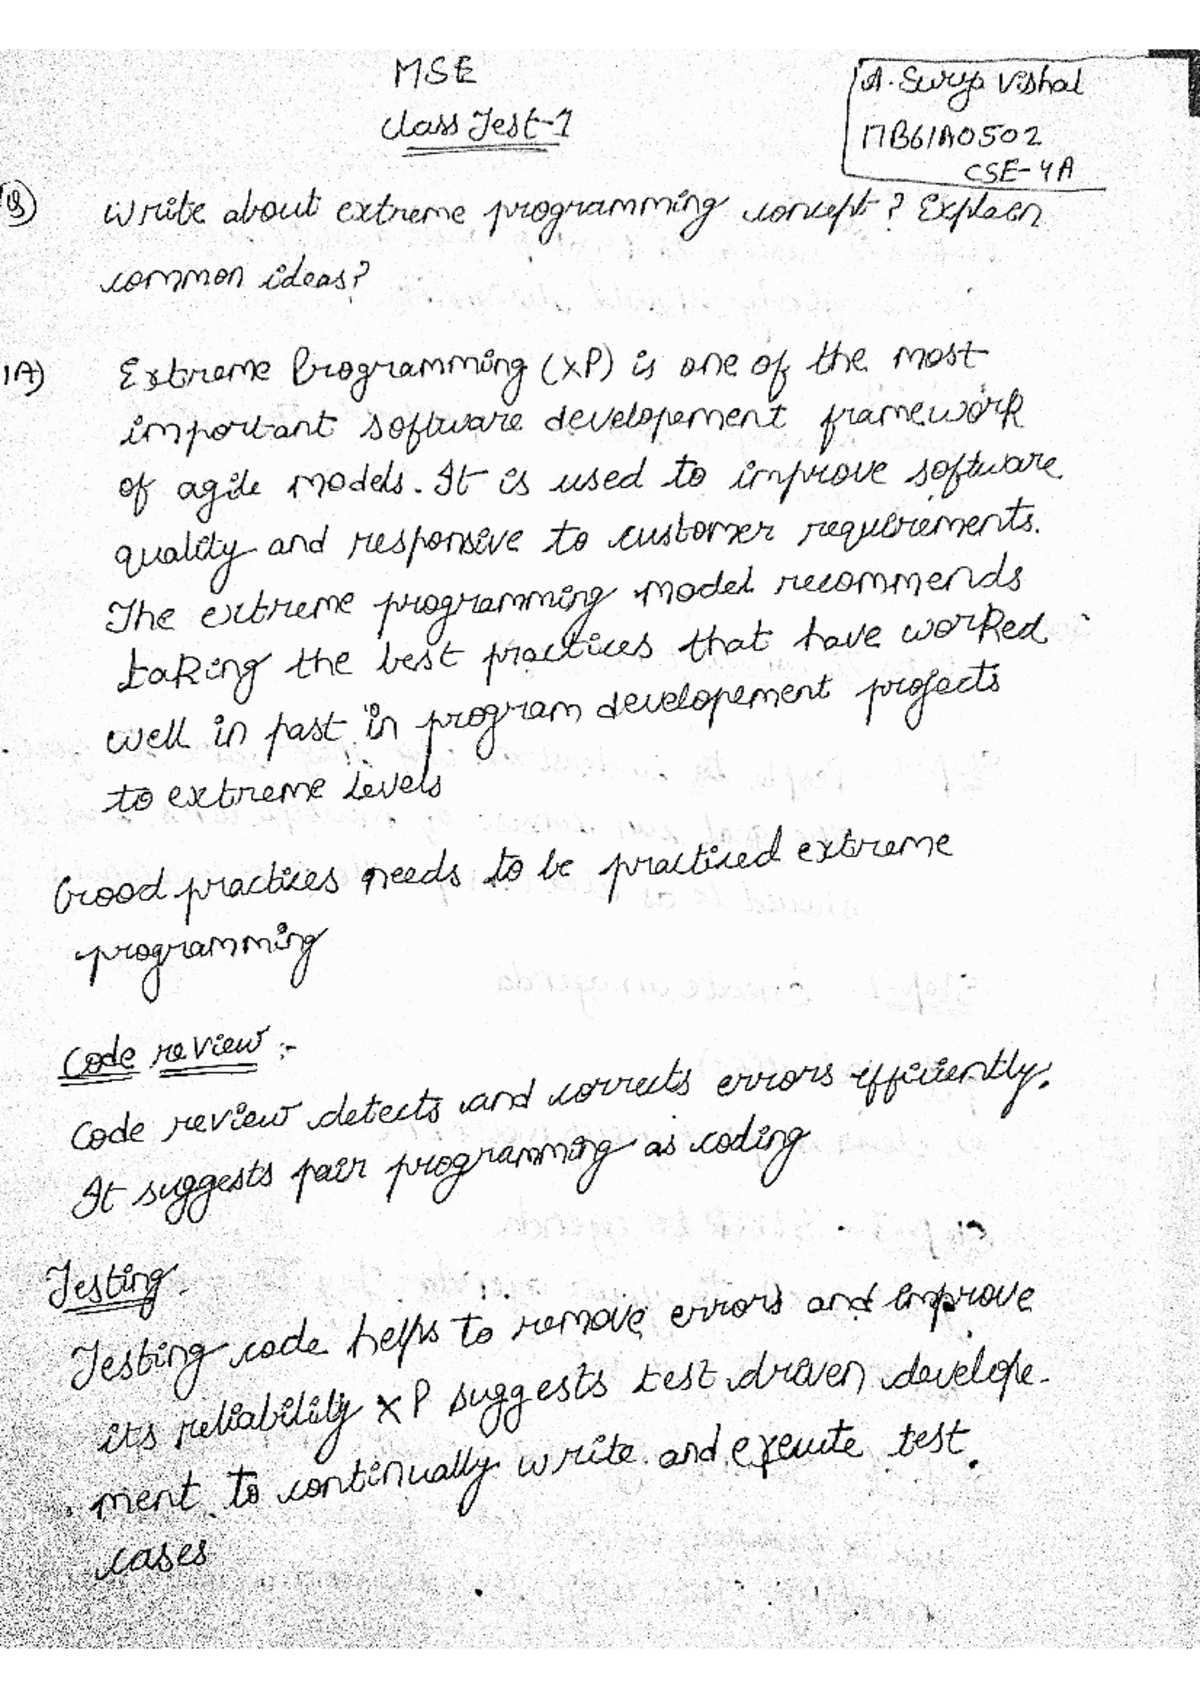 MSE
Class Test-1
A. Surya Vishal
17B61A0502
CSE-4A
Write about extreme programming concept? Explain
common ideas?
1A) Extreme Programming (XP) is one of the most
important software developement framework
of agile models. It is used to improve software
quality and responsive to customer requirements.
The extreme programming model recommends
taking the best practices that have worked
well in past in program developement projects
to extreme levels
Good practices needs to be practiced extreme
programming
Code review :-
Code review detects and corrects errors efficiently.
It suggests pair programming as coding
Testing
Testing code helps to remove errors and improve
its reliability XP suggests test driven develope-
ment to continually write and execute test
cases